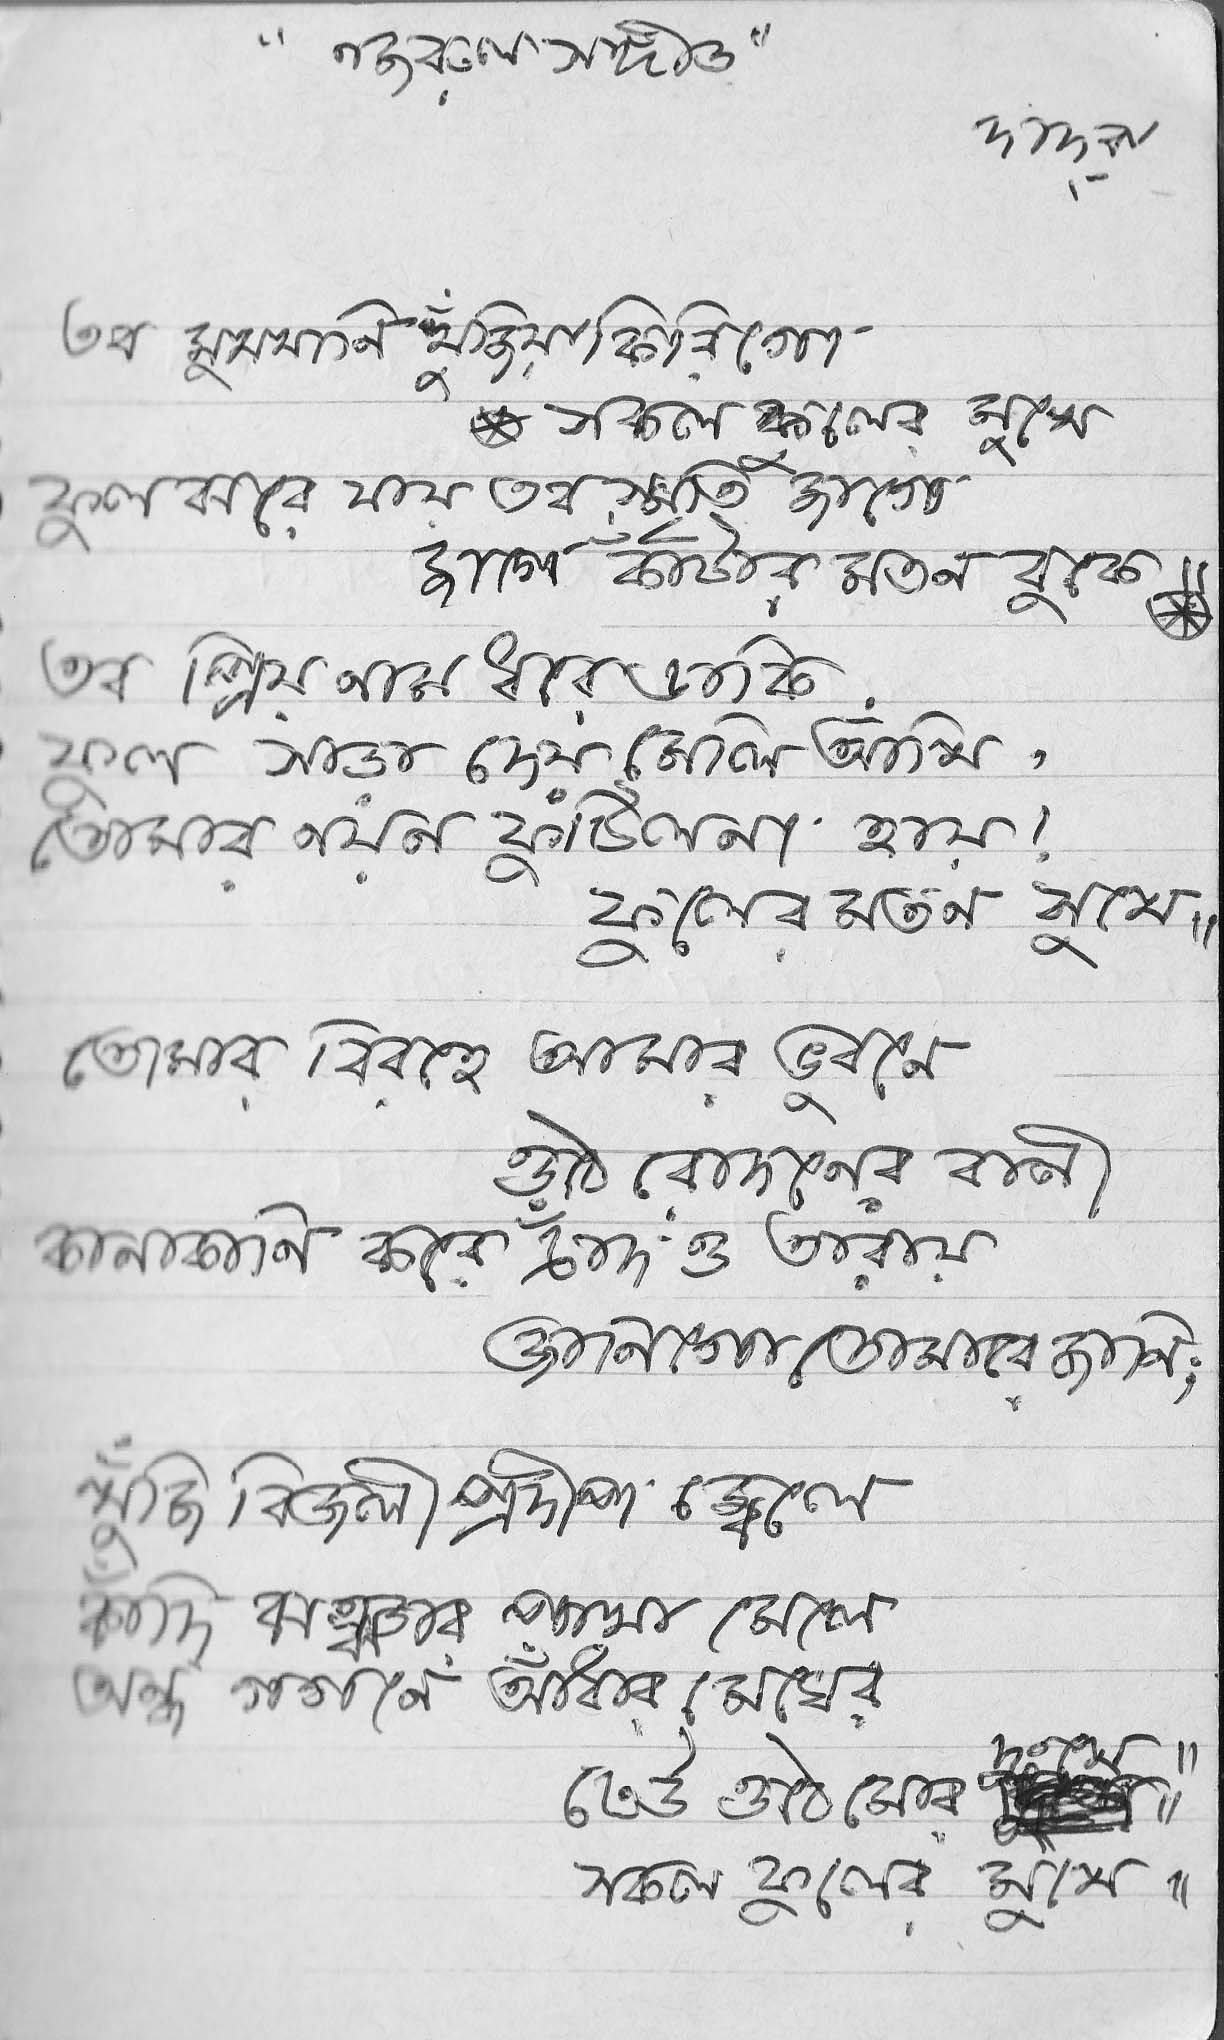 "নজরুল সঙ্গীত"
দাদ্‌রা
তব মুখখানি খুঁজিয়া ফিরি গো
সকল ফুলের মুখে
ফুল ঝরে যায় তব স্মৃতি জাগে
জাগে কাঁটার মতন বুকে॥
তব প্রিয় নাম ধরে ডাকি
ফুল সাড়া দেয় মেলি আঁখি,
তোমার নয়ন ফুটিলনা হায়!
ফুলের মতন সুখে॥
তোমার বিরহে আমার ভুবনে
ওঠে রোদনের বানী
কানাকানি করে চাঁদ ও তারায়
জানিগো তোমারে জানি;
খুঁজি বিজলী প্রদীপ জ্বেলে
কাঁদি ঝঞ্ঝার পাখা মেলে
অন্ধ গগনে আঁধার মেঘের
ঢেউ ওঠে মোর দুঃখে॥
সকল ফুলের মুখে॥